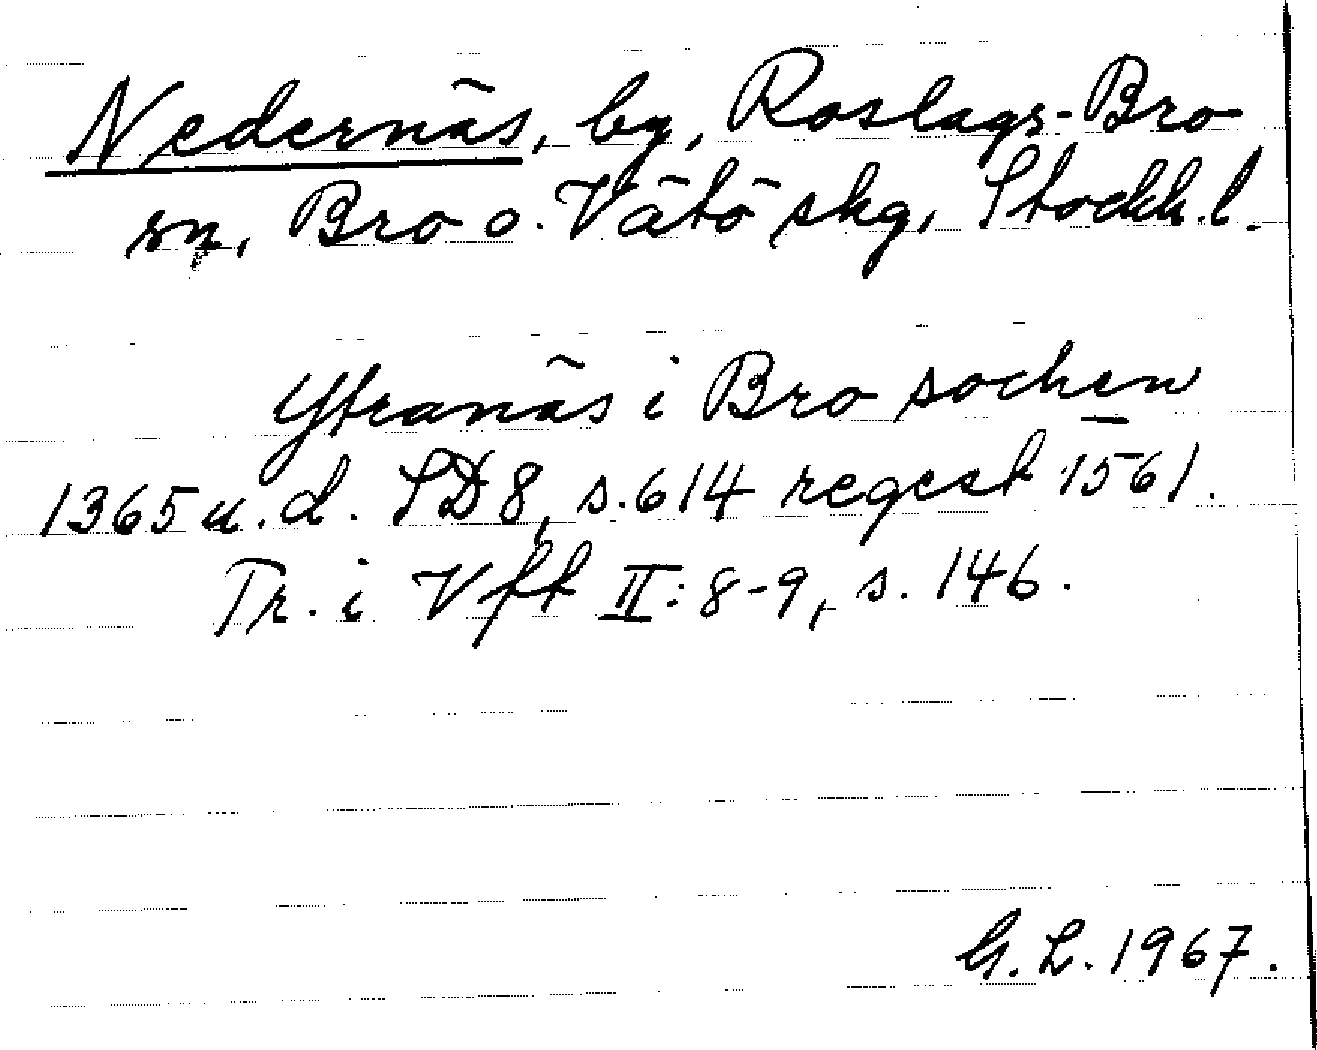 Nedernäs, by, Roslags-Bro
sn, Bro o. Vätö skg, Stockh. l.
Ytranäs i Bro sochen
1365 u. d. SD 8, s. 614 regest 1561.
Tr. i Vft II: 8-9, s. 146.
G. L. 1967.